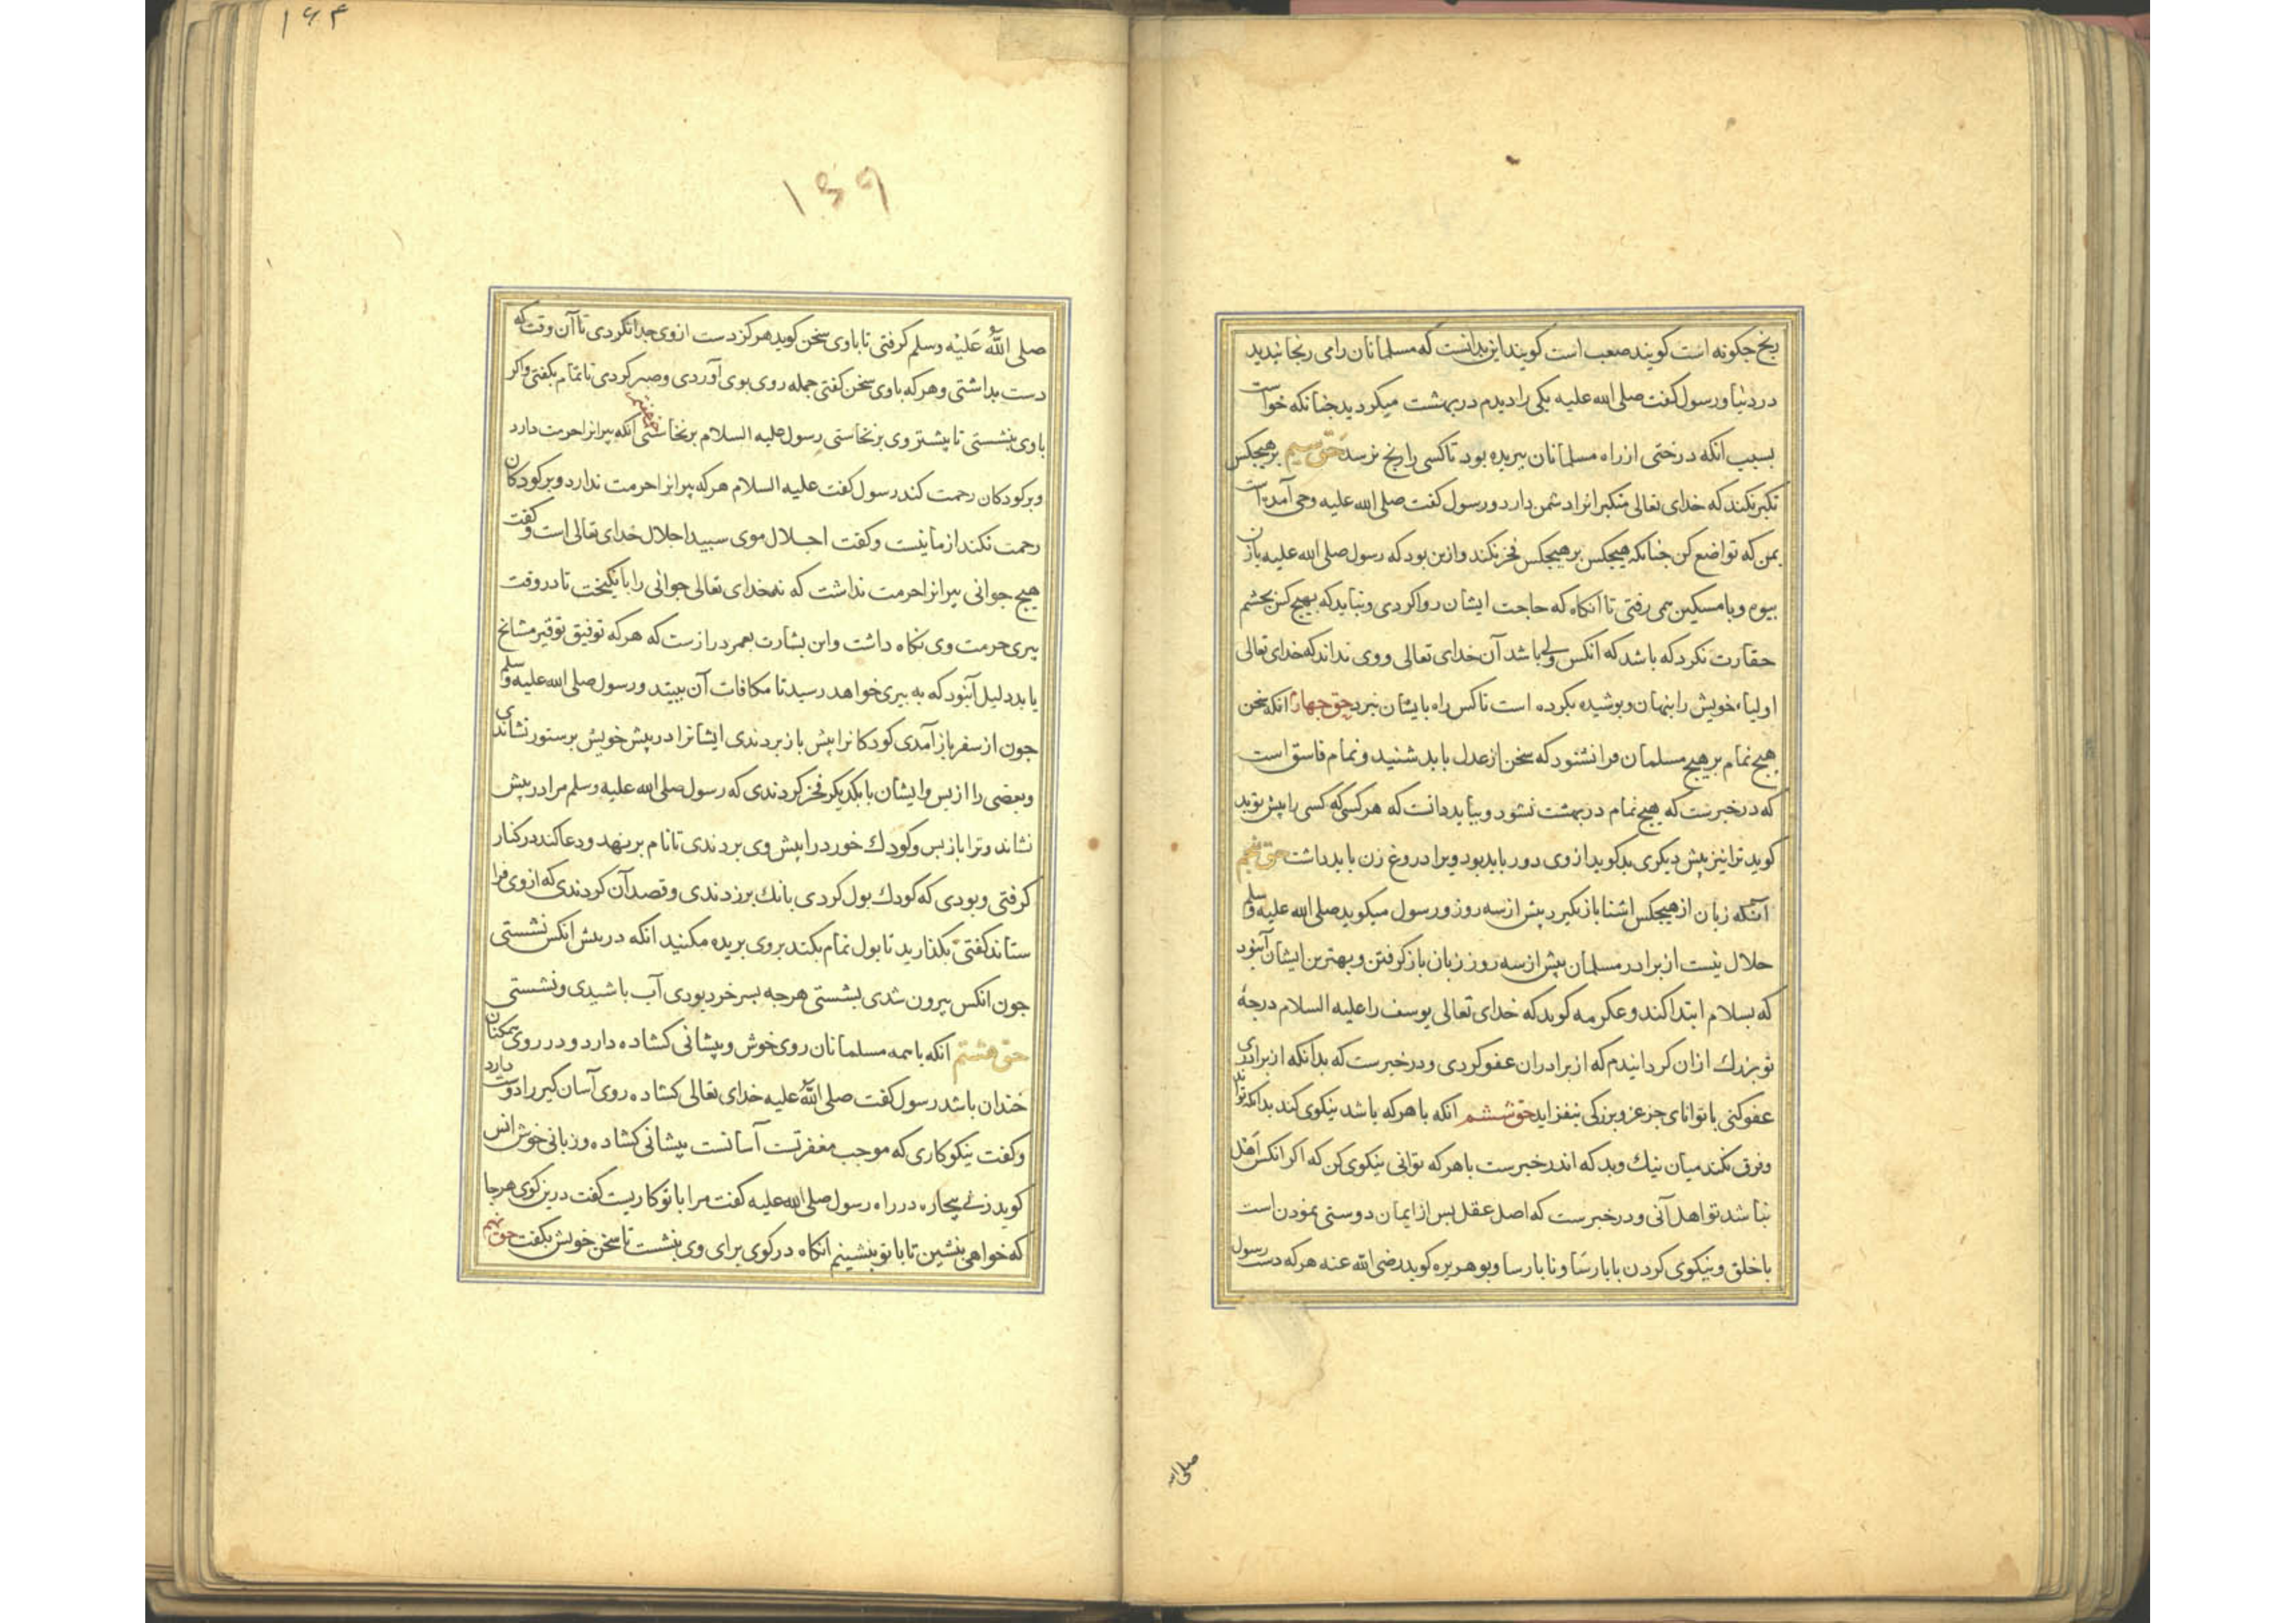 رنج جکونه است کویند صعب است کویند این بدانست که مسلمانان را می رنجانیدید
در دنیا و رسول کفت صلی الله علیه یکی را دیدم در بهشت میکردید جنانکه خواست
بسبب انکه درختی از راه مسلمانان ببریده بود تا کسی را رنج نرسد حق سیم بر هیجکس
تکبر نکند که خدای تعالی متکبرانرا دشمن دارد و رسول کفت صلی الله علیه وحی آمده است
بمن که تواضع کن جنانکه هیجکس بر هیجکس فخر نکند و ازین بود که رسول صلی الله علیه با زن
بیوه و با مسکین می رفتی تا آنکاه که حاجت ایشان روا کردی و نباید که بهیج کس بجشم
حقارت نکرد که باشد که انکس ولی باشد آن خدای تعالی و وی نداند که خدای تعالی
اولیاء خویش را بنهان و بوشیده بکرده است تا کس راه بایشان نبرد حق جهارم انکه سخن
هیج نمام بر هیج مسلمان فرا نشنود که سخن از عدل باید شنید و نمام فاسق است
که در خبرست که هیج نمام در بهشت نشود و بباید دانست که هر کسی که کسی را پیش تو بد
کوید ترا نیز پیش دیکری بد کوید از وی دور باید بود و یرا دروغ زن باید داشت حق پنجم
آنکه زبان از هیجکس اشنا باز نکیرد پیش از سه روز و رسول میکوید صلی الله علیه وسلم
حلال نیست از برادر مسلمان پیش از سه روز زبان باز کرفتن و بهترین ایشان آنبود
که بسلام ابتدا کند و عکرمه کوید که خدای تعالی یوسف را علیه السلام درجهٔ
تو بزرك ازان کردانیدم که از برادران عفو کردی و در خبرست که بدانکه از برادری
عفو کنی با توانای جز عز و بزرکی نیفزاید حق ششم انکه با هر که باشد نیکوی کند بدانکه تواند
و فرق نکند میان نیك و بد که اندر خبرست با هر که توانی نیکوی کن که اکر انکس اهل
نباشد تو اهل آنی و در خبرست که اصل عقل بس از ایمان دوستی نمودن است
با خلق و نیکوی کردن با بارسا و نا بارسا و بو هریره کوید رضی الله عنه هر که دست رسول
صلی الله
۱۶۴
۱۵۹
صلی اللهُ عَلَیْه وسلم کرفتی تا با وی سخن کوید هرکز دست از وی جدا نکردی تا آن وقت که
دست بداشتی و هر که با وی سخن کفتی جمله روی بوی آوردی و صبر کردی تا تمام بکفتی و اکر
با وی بنشستی تا پیشتر وی برنخاستی رسول علیه السلام برنخاستی هفتم انکه پیرانرا حرمت دارد
و بر کودکان رحمت کند رسول کفت علیه السلام هر که پیرانرا حرمت ندارد و بر کودکان
رحمت نکند از ما نیست و کفت اجلال موی سبید اجلال خدای تعالی است و کفت
هیج جوانی پیرانرا حرمت نداشت که نه خدای تعالی جوانی را بانکیخت تا در وقت
پیری حرمت وی نکاه داشت و این بشارت بعمر درازست که هر که توفیق توقیر مشایخ
یابد دلیل آنبود که به بیری خواهد رسید تا مکافات آن ببیند و رسول صلی الله علیه وسلم
جون از سفر باز آمدی کودکانرا پیش باز بردندی ایشانرا در پیش خویش بر ستور نشاندی
و بعضی را از بس و ایشان با یکدیکر فخر کردندی که رسول صلی الله علیه وسلم مرا در پیش
نشاند و ترا باز بس و کودك خورد را پیش وی بردندی تا نام برنهد و دعا کند در کنار
کرفتی و بودی که کودك بول کردی بانك بر زدندی و قصد آن کردندی که از وی فرا
ستاند کفتی بکذارید تا بول تمام بکند بر وی بریده مکنید انکه در پیش انکس نشستی
جون انکس بیرون شدی بشستی هر جه بسر خرد بودی آب باشیدی و نشستی
حق هشتم انکه با همه مسلمانان روی خوش و پیشانی کشاده دارد و در روی همکنان
خندان باشد رسول کفت صلی اللهُ علیه خدای تعالی کشاده روی آسان کیر را دوست دارد
و کفت نیکوکاری که موجب مغفرتست آسانست پیشانی کشاده و زبانی خوش انس
کوید زنی بیجاره در راه رسول صلی الله علیه کفت مرا با تو کاریست کفت درین کوی هر جا
که خواهی بنشین تا با تو بنشینم انکاه در کوی برای وی بنشست تا سخن خویش بکفت حق نهم